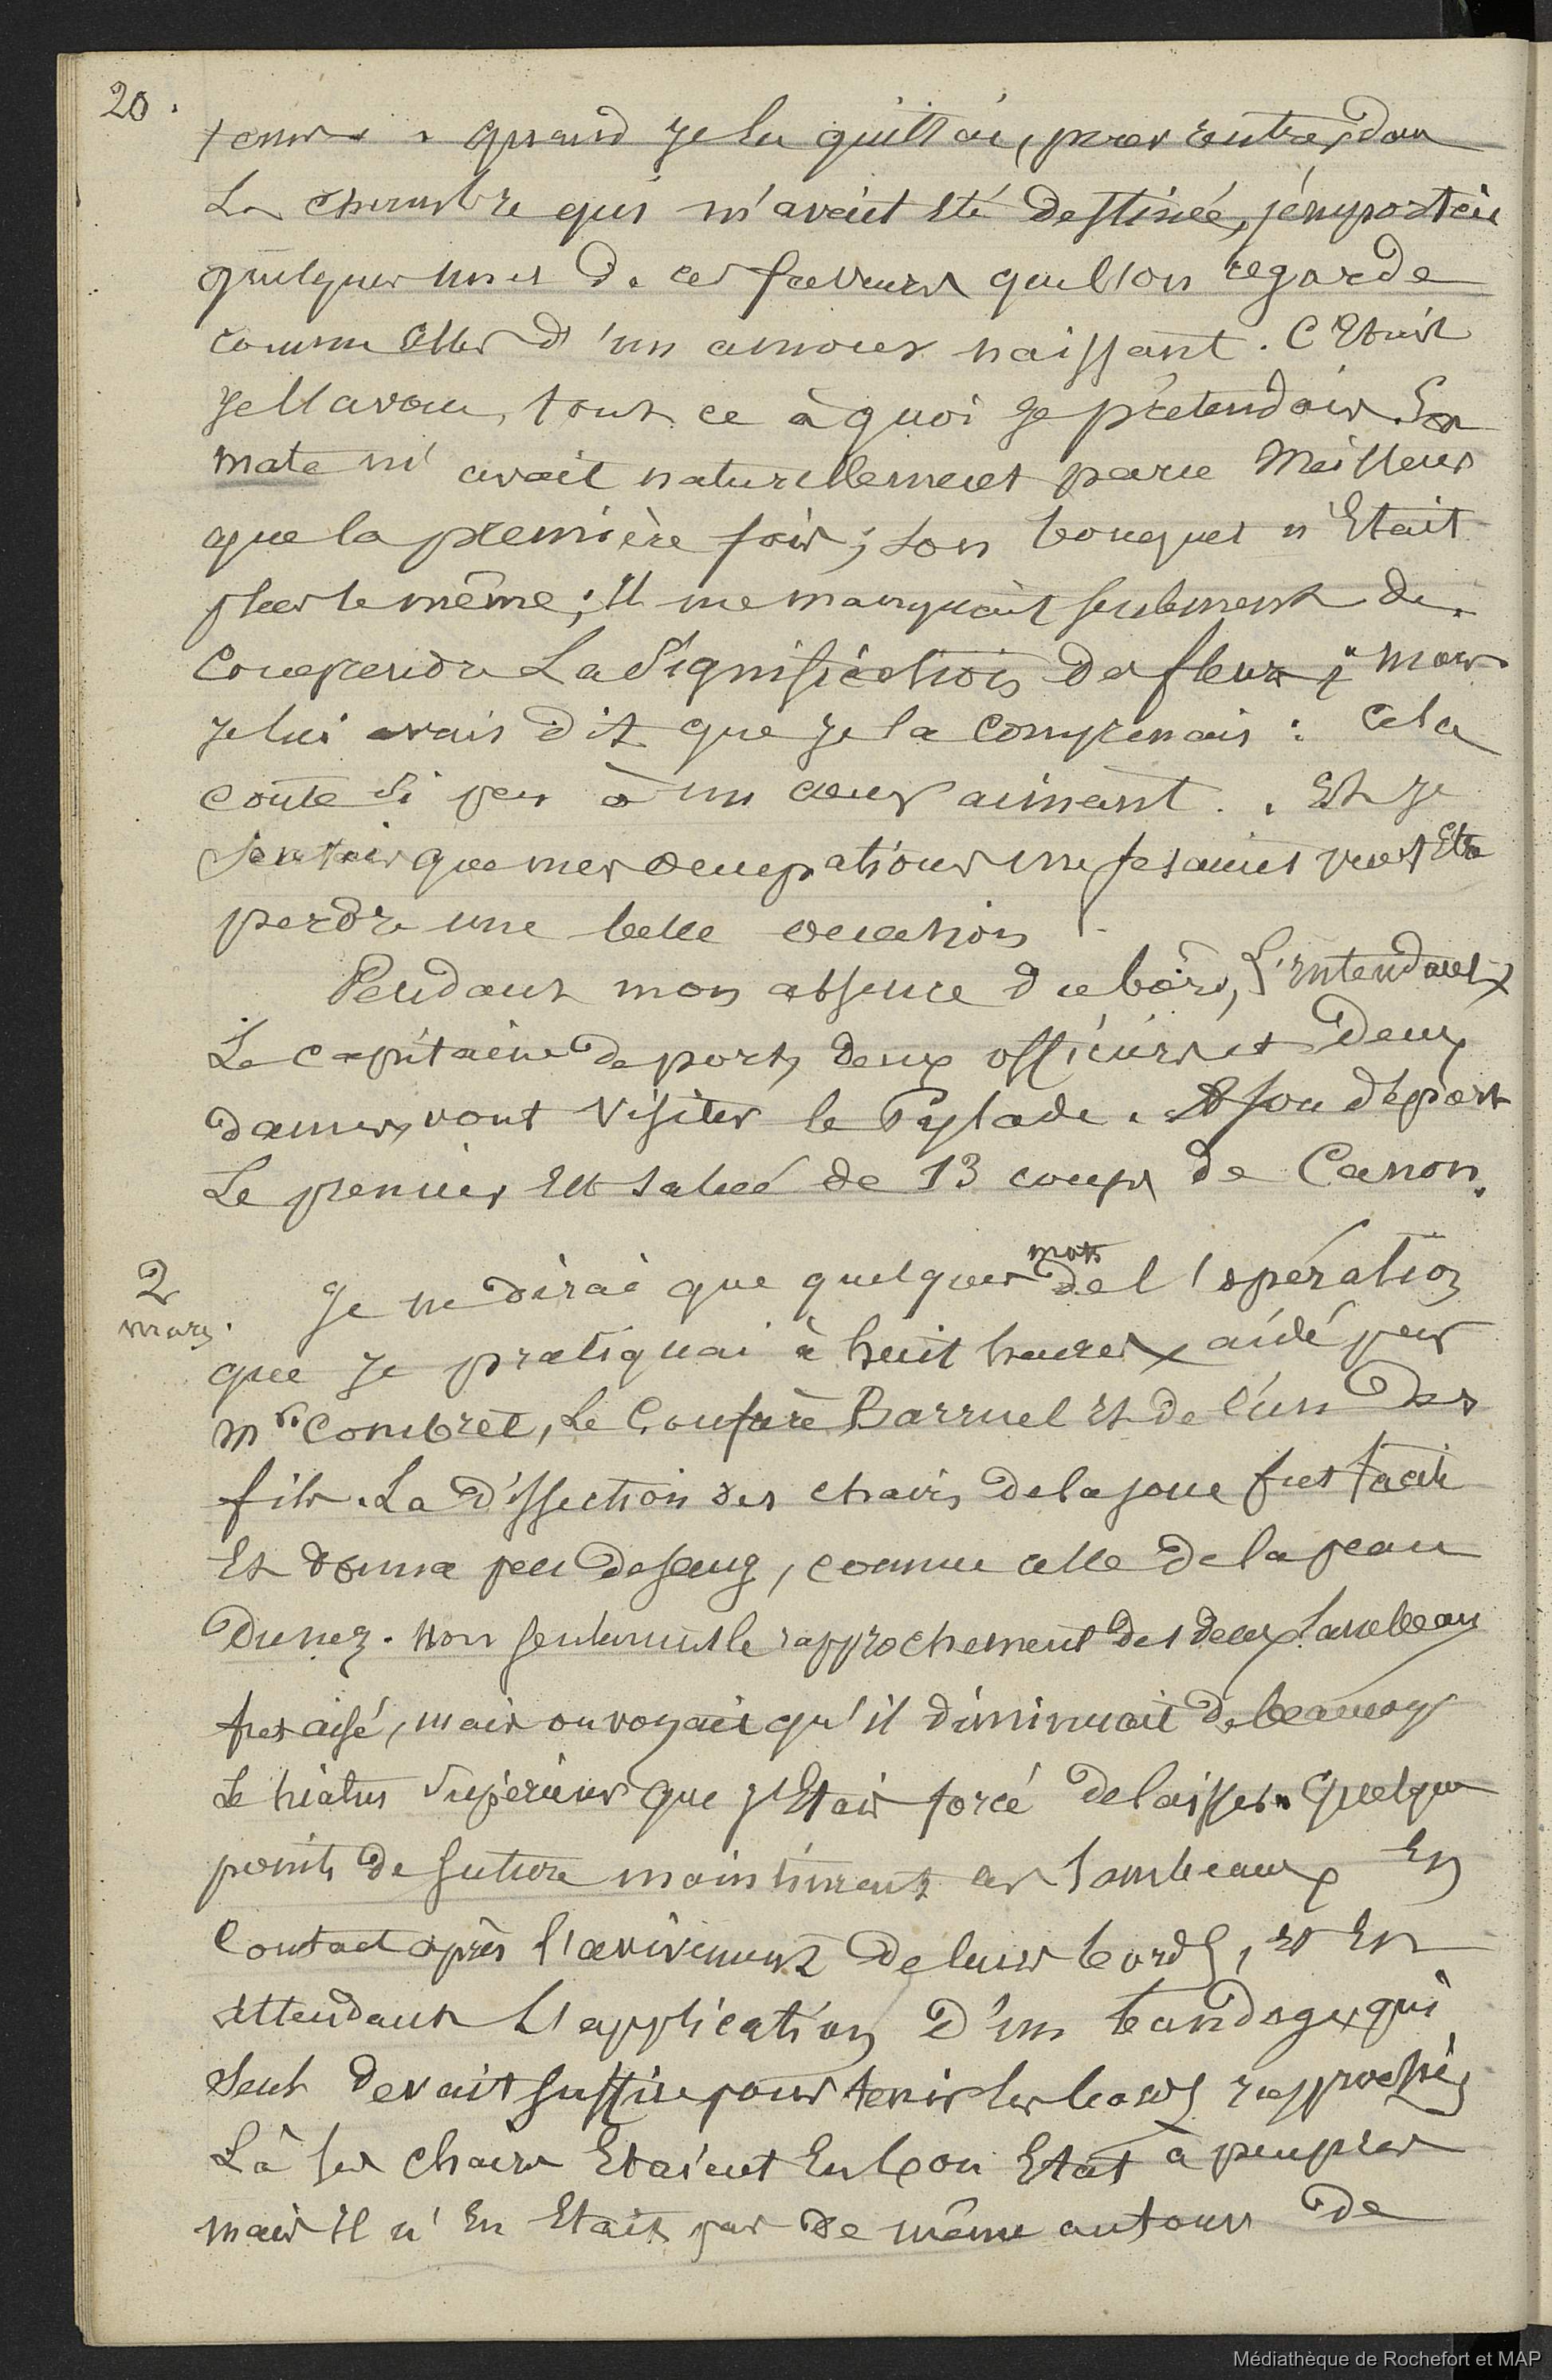 20.
quand je la quittai, pour rentrer dans
La chambre qui m'avait été destinée, j'emportai
quelques unes de ces faveurs que l'on regarde
comme celles d'un amour naissant. C'était
je l'avoue, tout ce à quoi je prétendais. Son
mate m'avait naturellement paru Meilleur
que la première fois; son bouquet n'Etait
plus le même; Il me manquait seulement de
Comprendre La Signification des fleurs; mais
je lui avais dit que je la comprenais : Cela
coûte si peu à un cœur aimant. . Et je
sentais que mes occupations me fesaient peut Etre
perdre une belle occasion.
Pendant mon absence du bord, L'intendant,
Le capitaine de port, deux officiers et deux
dames, vont visiter le Pylade. A son départ
Le premier Est salué de 13 coups de Canon.
2
mars.
Je ne dirai que quelques mots de l'opération
que je pratiquai à huit heures, aidé par
Mr. Combret, Le Confrère Barruel Et de l'un des
fils. La dissection des chairs de la joue fut facile
Et donna peu de sang, comme celle de la peau
du nez. Non seulement le rapprochement des deux lambeaux
fut aisé, mais on voyait qu'il diminuait de beaucoup
Le hiatus Supérieur que j'Etais forcé de laisser. Quelques
points de suture maintinrent ces lambeaux En
Contact après l'avivement de leurs bords, et En
attendant L'application d'un bandage qui
seul devait suffire pour tenir les bords rapprochés
Là les chairs Etaient En bon Etat à peu près
mais Il n'En Etait pas de même autour de
Médiathèque de Rochefort et MAP